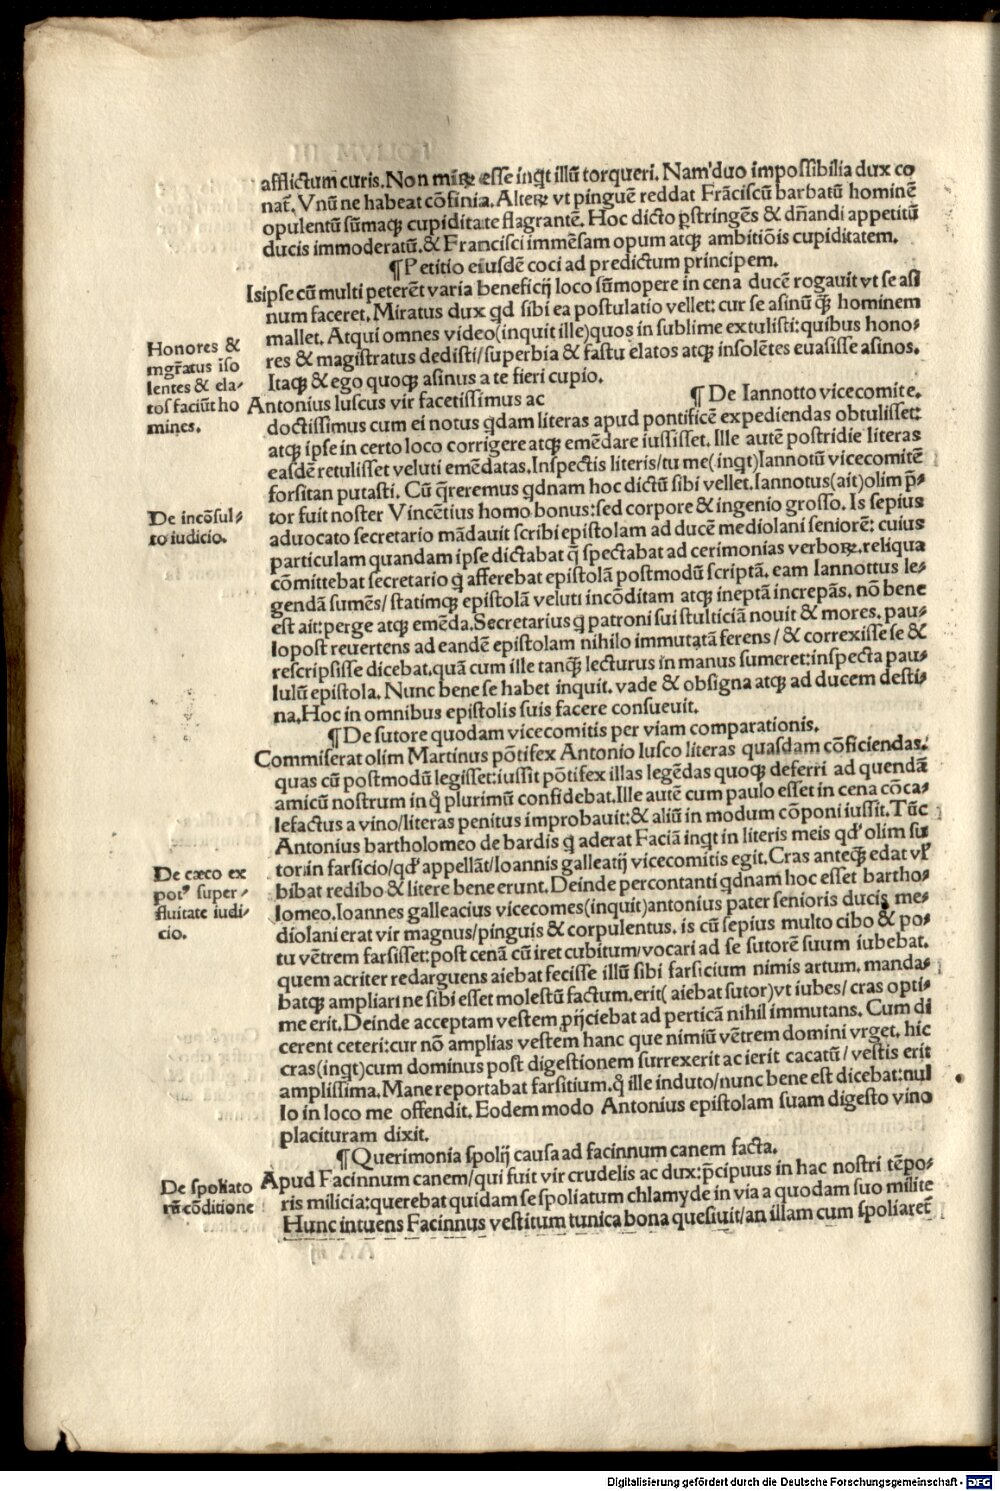 afflictum curis. Non miꝝ esse inqͥt illū torqueri. Nam duo impossibilia dux co
nat̄. Vnū ne habeat cōfinia. Alteꝝ vt pinguē reddat Frāciscū barbatū hominē
opulentū sūmaqꝫ cupiditate flagrantē. Hoc dicto ꝑstringēs & dn̄andi appetitū
ducis immoderatū. & Francisci immēsam opum atqꝫ ambitiōis cupiditatem.
¶ Petitio eiusdē coci ad predictum principem.
Isipse cū multi peterēt varia beneficij loco sūmopere in cena ducē rogauit vt se asi
num faceret. Miratus dux qd sibi ea postulatio vellet: cur se asinū qꝫ̄ hominem
mallet. Atqui omnes video(inquit ille)quos in sublime extulisti: quibus hono⸗
Honores &
res & magistratus dedisti/superbia & fastu elatos atqꝫ insolētes euasisse asinos.
mgr̄atus iso
Itaqꝫ & ego quoqꝫ asinus a te fieri cupio.
lentes & ela⸗
¶ De Iannotto vicecomite.
tos faciūt ho
Antonius luscus vir facetissimus ac
mines.
doctissimus cum ei notus qdam literas apud pontificē expediendas obtulisset:
atqꝫ ipse in certo loco corrigere atqꝫ emēdare iussisset. Ille autē postridie literas
easdē retulisset veluti emēdatas. Inspectis literis/tu me(inqͥt)Iannotū vicecomitē
forsitan putasti. Cū q̄reremus qdnam hoc dictū sibi vellet. Iannotus(ait)olim p̄⸗
De incōsul⸗
tor fuit noster Vincētius homo bonus: sed corpore & ingenio grosso. Is sepius
to iudicio.
aduocato secretario mādauit scribi epistolam ad ducē mediolani seniorē: cuius
particulam quandam ipse dictabat q̄ spectabat ad cerimonias verboꝝ. reliqua
cōmittebat secretario q afferebat epistolā postmodū scriptā. eam Iannottus le⸗
gendā sumēs/ statimqꝫ epistolā veluti incōditam atqꝫ ineptā increpās. nō bene
est ait: perge atqꝫ emēda. Secretarius q patroni sui stulticiā nouit & mores. pau⸗
lopost reuertens ad eandē epistolam nihilo immutatā ferens/ & correxisse se &
rescripsisse dicebat. quā cum ille tanqꝫ̄ lecturus in manus sumeret: inspecta pau⸗
lulū epistola. Nunc bene se habet inquit. vade & obsigna atqꝫ ad ducem desti⸗
na. Hoc in omnibus epistolis suis facere consueuit.
¶ De sutore quodam vicecomitis per viam comparationis.
Commiserat olim Martinus pōtifex Antonio lusco literas quasdam cōficiendas.
quas cū postmodū legisset: iussit pōtifex illas legēdas quoqꝫ deferri ad quendā
amicū nostrum in q̊ plurimū confidebat. Ille autē cum paulo esset in cena cōca⸗
lefactus a vino/literas penitus improbauit: & aliū in modum cōponi iussit. Tūc
Antonius bartholomeo de bardis q aderat Faciā inqt in literis meis qd' olim su
De cæco ex
tor in farsicio/qd' appellāt/Ioannis galleatij vicecomitis egit. Cras anteqꝫ̄ edat vl'
potꝰ super⸗
bibat redibo & litere bene erunt. Deinde percontanti qdnam hoc esset bartho⸗
fluitate iudi⸗
lomeo. Ioannes galleacius vicecomes(inquit)antonius pater senioris ducis me⸗
cio.
diolani erat vir magnus/pinguis & corpulentus. is cū sepius multo cibo & po⸗
tu vētrem farsisset: post cenā cū iret cubitum/vocari ad se sutorē suum iubebat.
quem acriter redarguens aiebat fecisse illū sibi farsicium nimis artum. manda⸗
batqꝫ ampliari ne sibi esset molestū factum. erit( aiebat sutor)vt iubes/ cras opti⸗
me erit. Deinde acceptam vestem ꝓijciebat ad perticā nihil immutans. Cum di
cerent ceteri: cur nō amplias vestem hanc que nimiū vētrem domini vrget. hic
cras(inqt)cum dominus post digestionem surrexerit ac ierit cacatū/ vestis erit
amplissima. Mane reportabat farsitium. q̊ ille induto/nunc bene est dicebat: nul
lo in loco me offendit. Eodem modo Antonius epistolam suam digesto vino
placituram dixit.
¶ Querimonia spolij causa ad facinnum canem facta.
De spoliato
Apud Facinnum canem/qui fuit vir crudelis ac dux: p̄cipuus in hac nostri tēpo⸗
rū cōditione
ris milicia: querebat quidam se spoliatum chlamyde in via a quodam suo milite
Hunc intuens Facinnus vestitum tunica bona quesiuit/an illam cum spoliaret̄
Digitalisierung gefördert durch die Deutsche Forschungsgemeinschaft - DFG